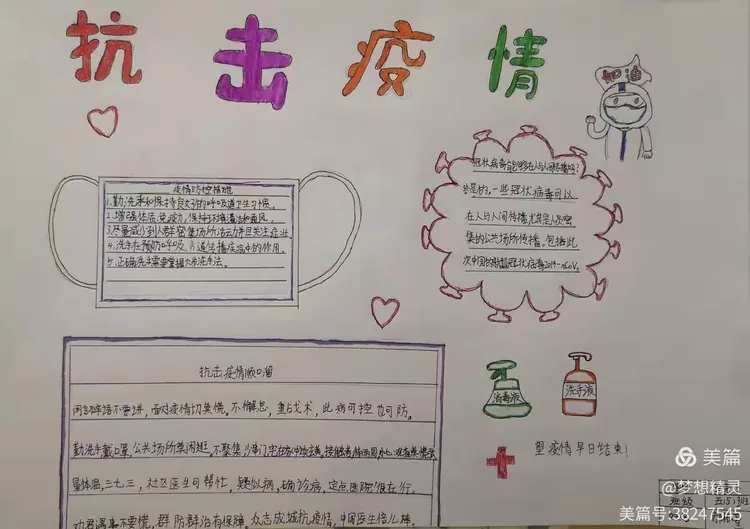 抗击疫情
加油
疫情防控措施
1.勤洗手和保持良好的呼吸道卫生习惯。
2.增强体质、免疫力,保持环境清洁和通风。
3.尽量减少到人群密集场所活动并且关注症状。
4.洗手在预防呼吸道传播疾病中的作用。
5.正确洗手需要掌握六步洗手法。
冠状病毒能够在人与人间传播吗?
是的,一些冠状病毒可以
在人与人间传播,尤其是人员密
集的公共场所传播。包括此
次中国的新型冠状病毒2019-nCoV。
抗击疫情顺口溜
面对疫情切莫慌。不懈怠,重战术,此病可控可防。
勤洗手戴口罩,公共场所莫闲逛。不聚集少串门,
量体温,三七三,社区医生可帮忙。疑似病,确诊病,定点医院很在行。
遇事不要慌,群防群治有保障。众志成城抗疫情,中国医生倍儿棒。
消毒液
洗手液
望疫情早日结束!
班级
五(5)班
美篇
@梦想精灵
美篇号:38247545